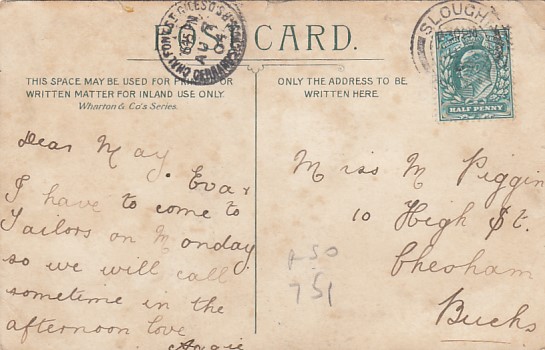 CARD.
THIS SPACE MAY BE USED FOR PRINTED OR
WRITTEN MATTER FOR INLAND USE ONLY.
Wharton & Co's Series.
ONLY THE ADDRESS TO BE
WRITTEN HERE.
CHALFONT ST GILES S.O.
GERRARDS CROSS
AU
04
SLOUGH
HALF PENNY
Dear May,
Eva &
I have to come to
Tailors on Monday
so we will call
sometime in the
afternoon love
Angie
Miss M Piggin
10 High St.
Chesham
Bucks
751